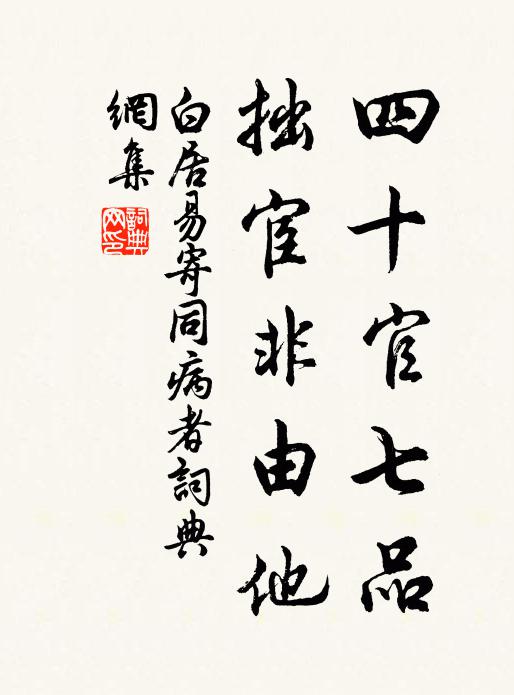 四十官七品
拙宦非由他
白居易寄同病者詞典
網集
詞典
网印